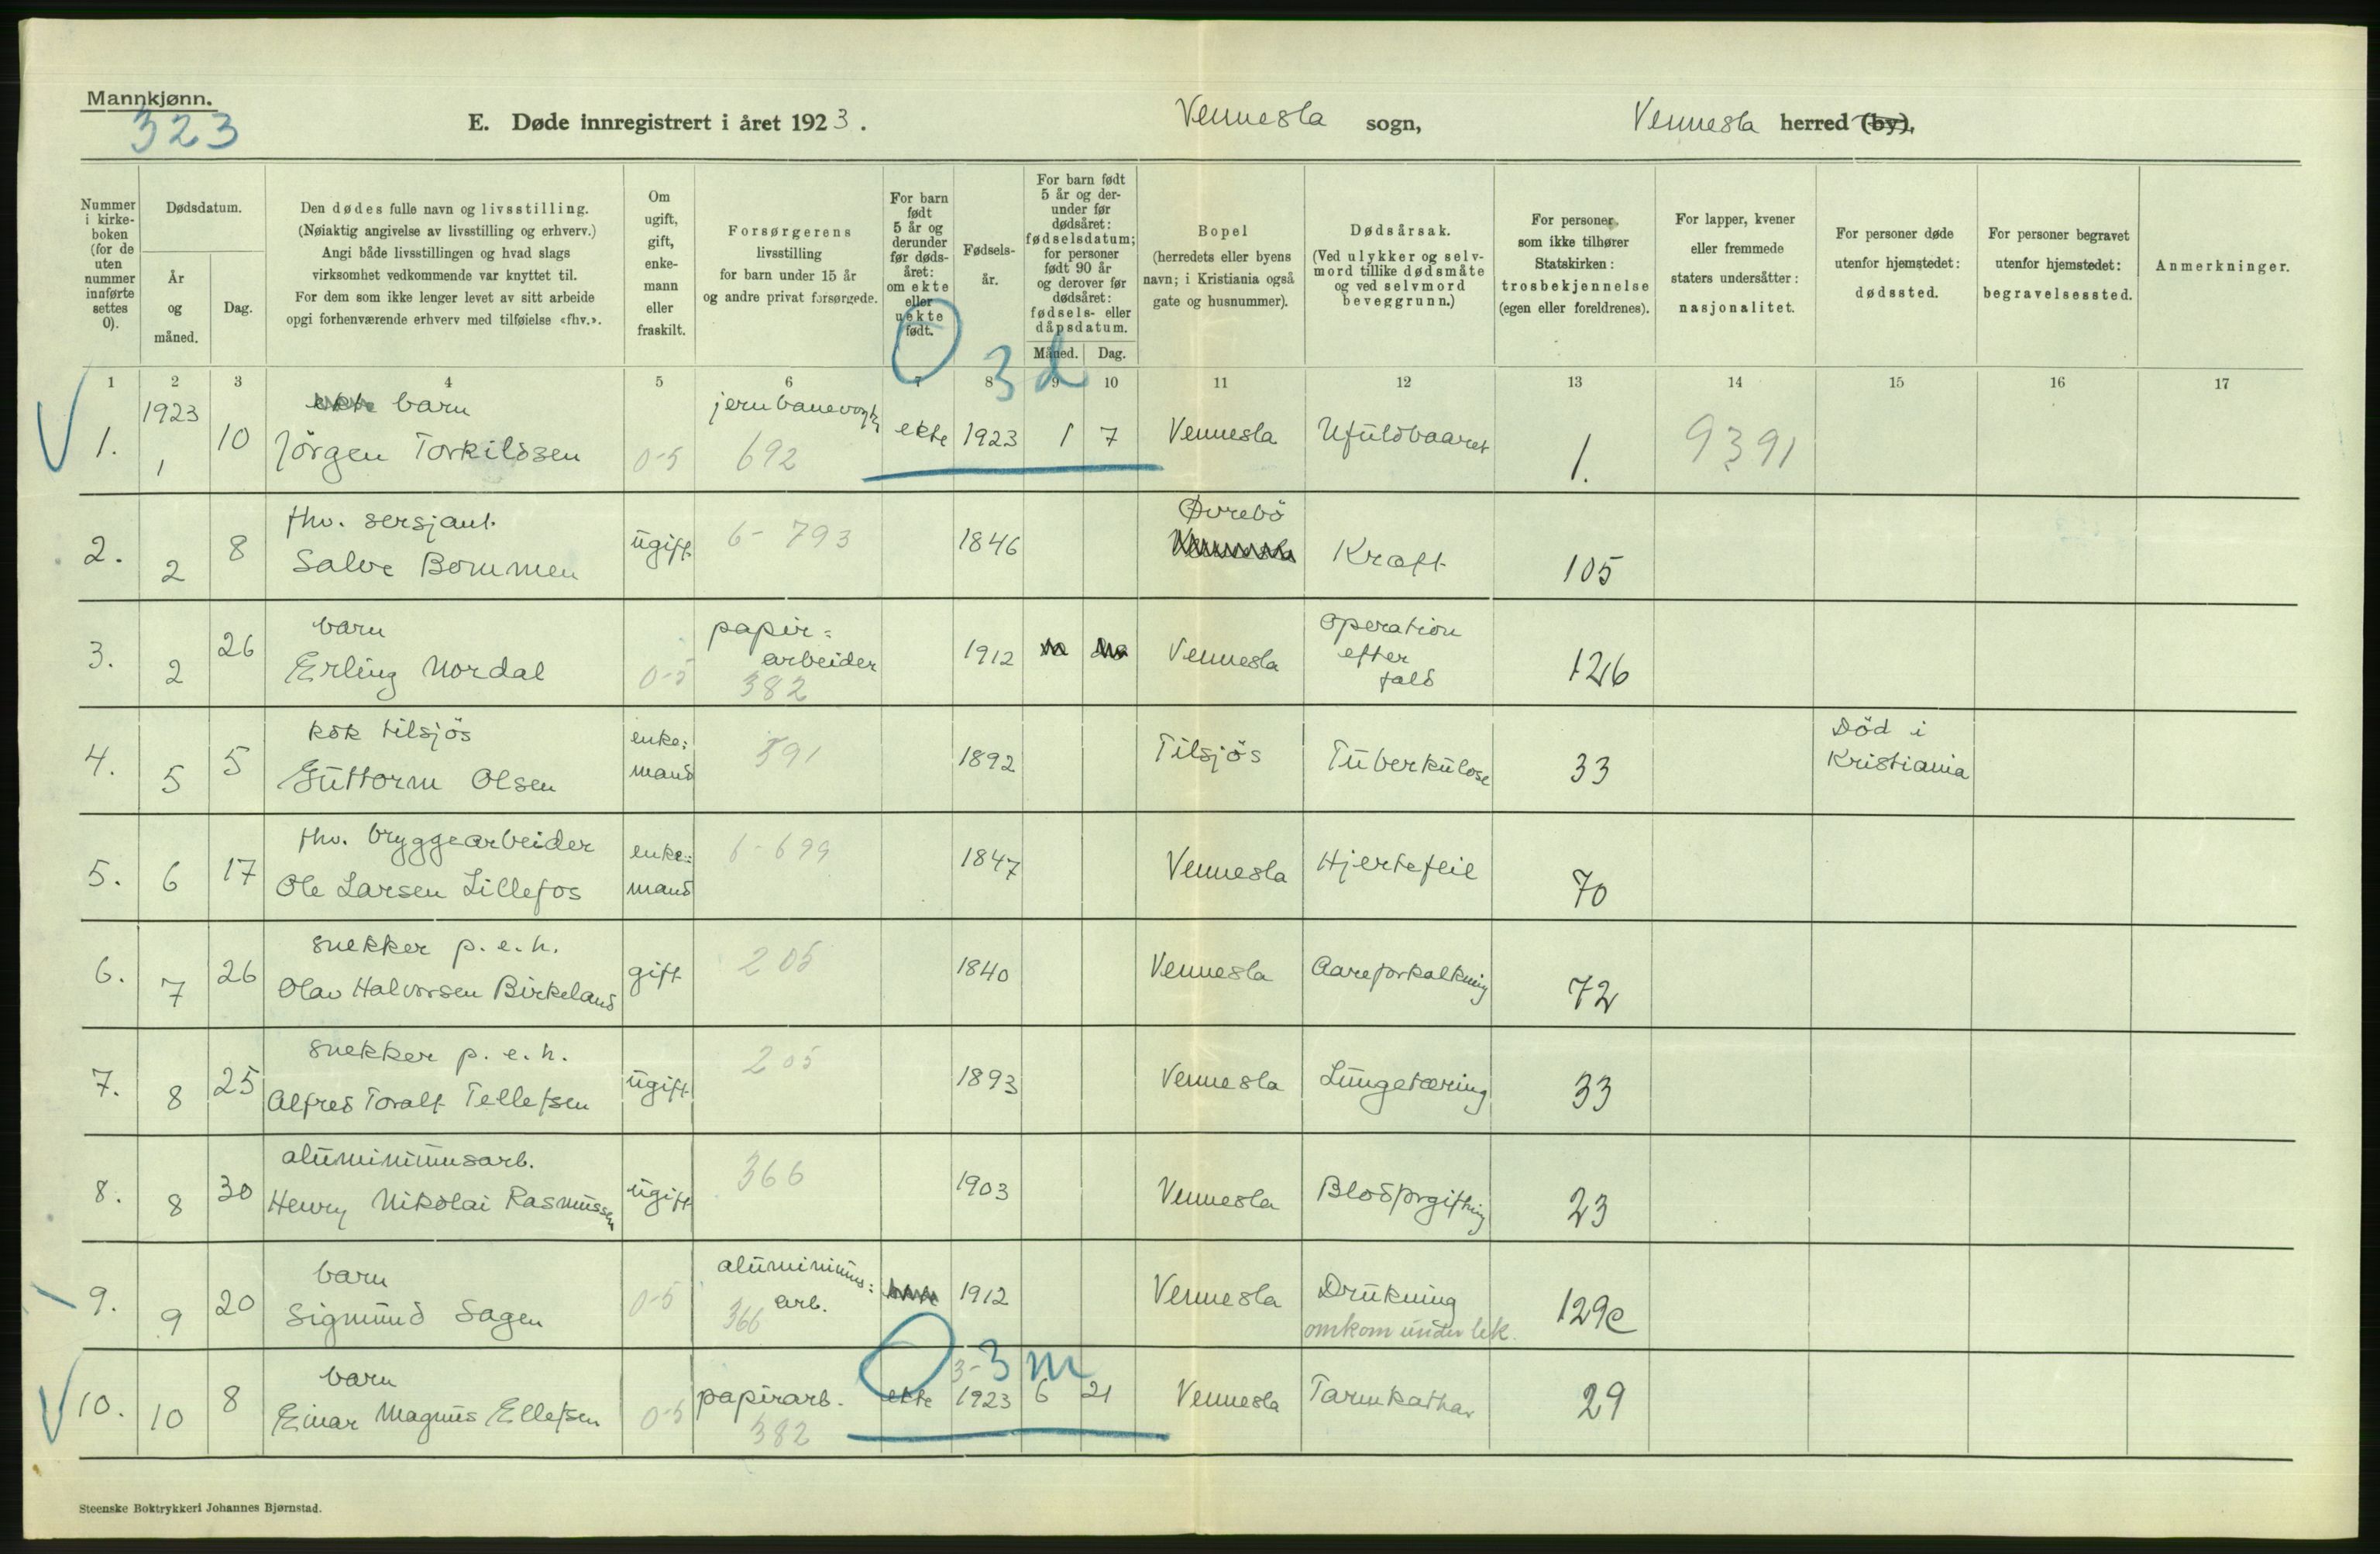 Mannkjønn.
323
E. Døde innregistrert i året 1923.
Vennesla sogn,
Vennesla herred (by),
Nummer i kirke-boken (for de uten nummer innførte settes 0).
Dødsdatum.
År og måned.
Dag.
Den dødes fulle navn og livsstilling.
(Nøiaktig angivelse av livsstilling og erhverv.)
Angi både livsstillingen og hvad slags
virksomhet vedkommende var knyttet til.
For dem som ikke lenger levet av sitt arbeide
opgi forhenværende erhverv med tilføielse «fhv.».
Om ugift, gift, enke-mann eller fraskilt.
Forsørgerens
livsstilling
for barn under 15 år
og andre privat forsørgede.
For barn født 5 år og derunder før døds-året: om ekte eller uekte født.
Fødsels-år.
For barn født 5 år og der-under før dødsåret: fødselsdatum; for personer født 90 år og derover før dødsåret: fødsels- eller dåpsdatum.
Måned.
Dag.
Bopel
(herredets eller byens
navn; i Kristiania også
gate og husnummer).
Dødsårsak.
(Ved ulykker og selv-
mord tillike dødsmåte
og ved selvmord
beveggrunn.)
For personer
som ikke tilhører
Statskirken:
trosbekjennelse
(egen eller foreldrenes).
For lapper, kvener
eller fremmede
staters undersåtter:
nasjonalitet.
For personer døde
utenfor hjemstedet:
dødssted.
For personer begravet
utenfor hjemstedet:
begravelsessted.
Anmerkninger.
1 2 3 4 5 6 7 8 9 10 11 12 13 14 15 16 17
3 d
1923 ekte barn jernbanevogt
1. 1 10 Jörgen Torkildsen 0-5 692 ekte 1923 1 7 Vennesla Ufuldbaaret 1. 9391
fhv. sersjant. Øvrebö
2. 2 8 Salve Bommen ugift 6-793 1846 Vennesla Kræft 105
barn papir= arbeider operation efter fald
3. 2 26 Erling Nordal 0-5 382 1912 Vennesla 126
kok tilsjös enke= mand Död i Kristiania
4. 5 5 Guttorm Olsen 591 1892 Tilsjös Tuberkulose 33
fhv. bryggearbeider enke= mand
5. 6 17 Ole Larsen Lillefos 6-699 1847 Vennesla Hjertefeil 70
snekker p. e. h.
6. 7 26 Olav Halvorsen Birkeland gift 205 1840 Vennesla Aareforkalkning 72
snekker p. e. h.
7. 8 25 Alfred Toralf Tellefsen ugift 205 1893 Vennesla Lungetæring 33
aluminiumsarb.
8. 8 30 Henry Nikolai Rasmussen ugift 366 1903 Vennesla Blodforgiftning 23
barn aluminiums= arb.
9. 9 20 Sigmund Sagen 0-5 366 1912 Vennesla Drukning 129c
omkom under lek.
3-3 m
barn
10. 10 8 Einar Magnus Ellefsen 0-5 papirarb. 382 ekte 1923 6 21 Vennesla Tarmkathar 29
Steenske Boktrykkeri Johannes Bjørnstad.